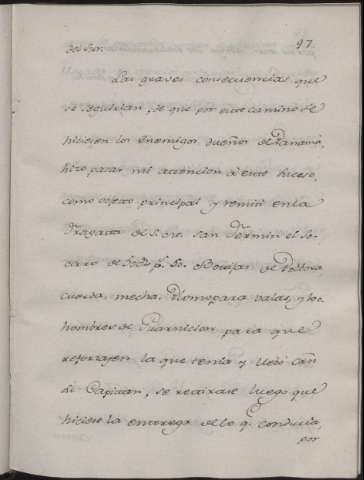 97.
Las graves consecuencias que
se seguirian, de que por este camino se
hiciesen los enemigos dueños de Panamá,
hizo pasar mi attencion à este suceso,
como objeto principal y remití en la
Fragata de S. M. San Fermin el So-
corro de
cuerda, mecha, Plomo para valas, y
hombres de Guarnicion para que
reforzasen la que tenia y
Capitan, se retirase luego que
hiciese la entrega de lo q. conducia,
por